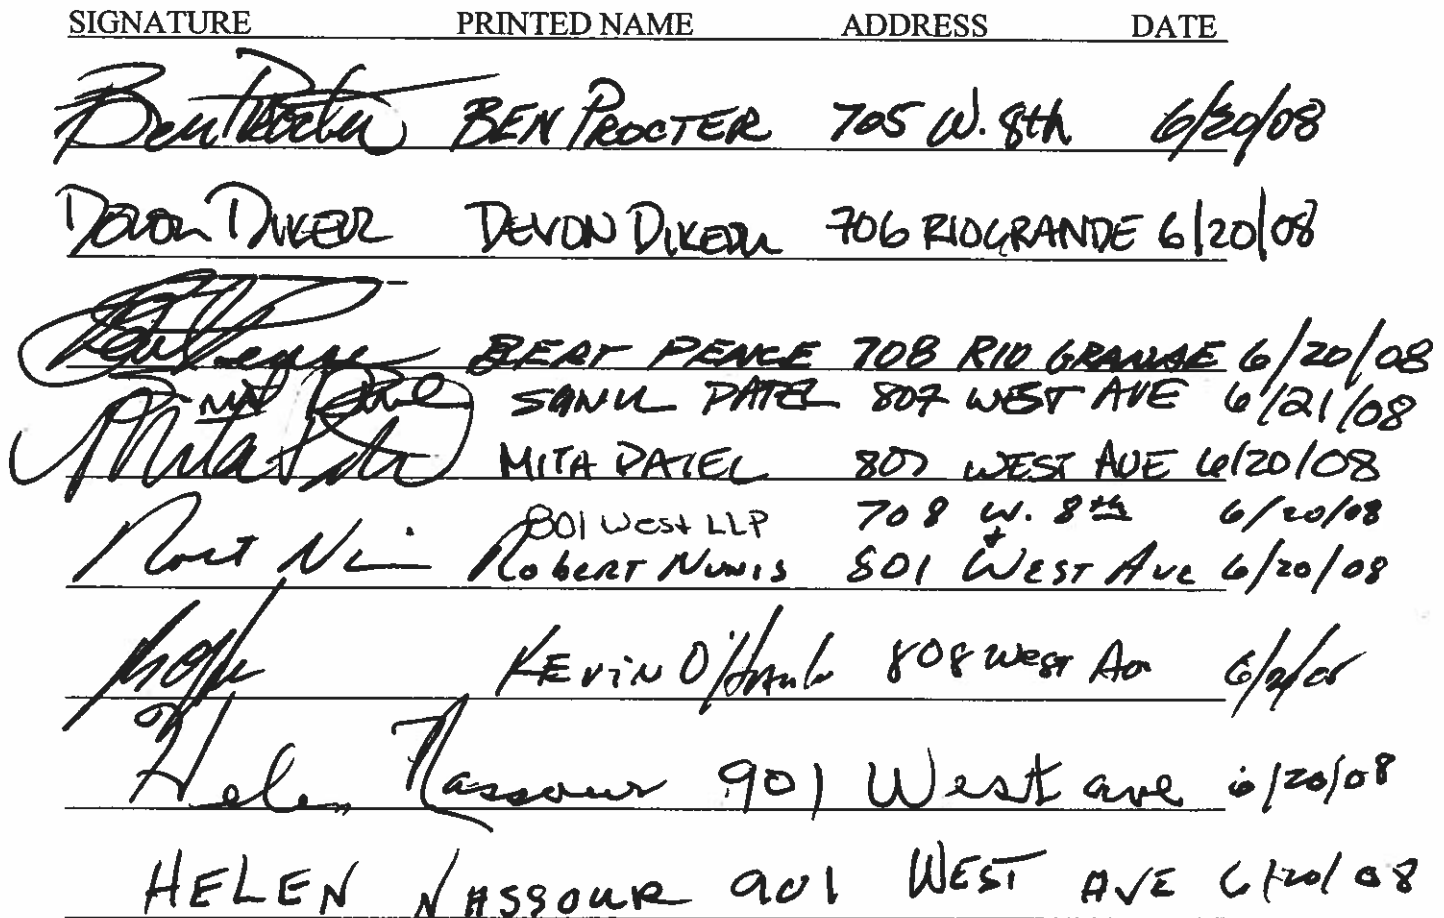 SIGNATURE PRINTED NAME ADDRESS DATE
Ben Procter BEN PROCTER 705 W. 8th 6/20/08
Devon Dikeou DEVON DIKEOU 706 RIO GRANDE 6/20/08
Bert Pence BERT PENCE 708 RIO GRANDE 6/20/08
Patel PATEL 807 WEST AVE 6/21/08
Mita Patel MITA PATEL 807 WEST AVE 6/20/08
801 West LLP 708 W. 8th 6/20/08
+
ROBERT NUNIS 801 WEST AVE 6/20/08
KEVIN 808 West 
Helen Nassour 901 West ave 6/20/08
HELEN NASSOUR 901 WEST AVE 6/20/08